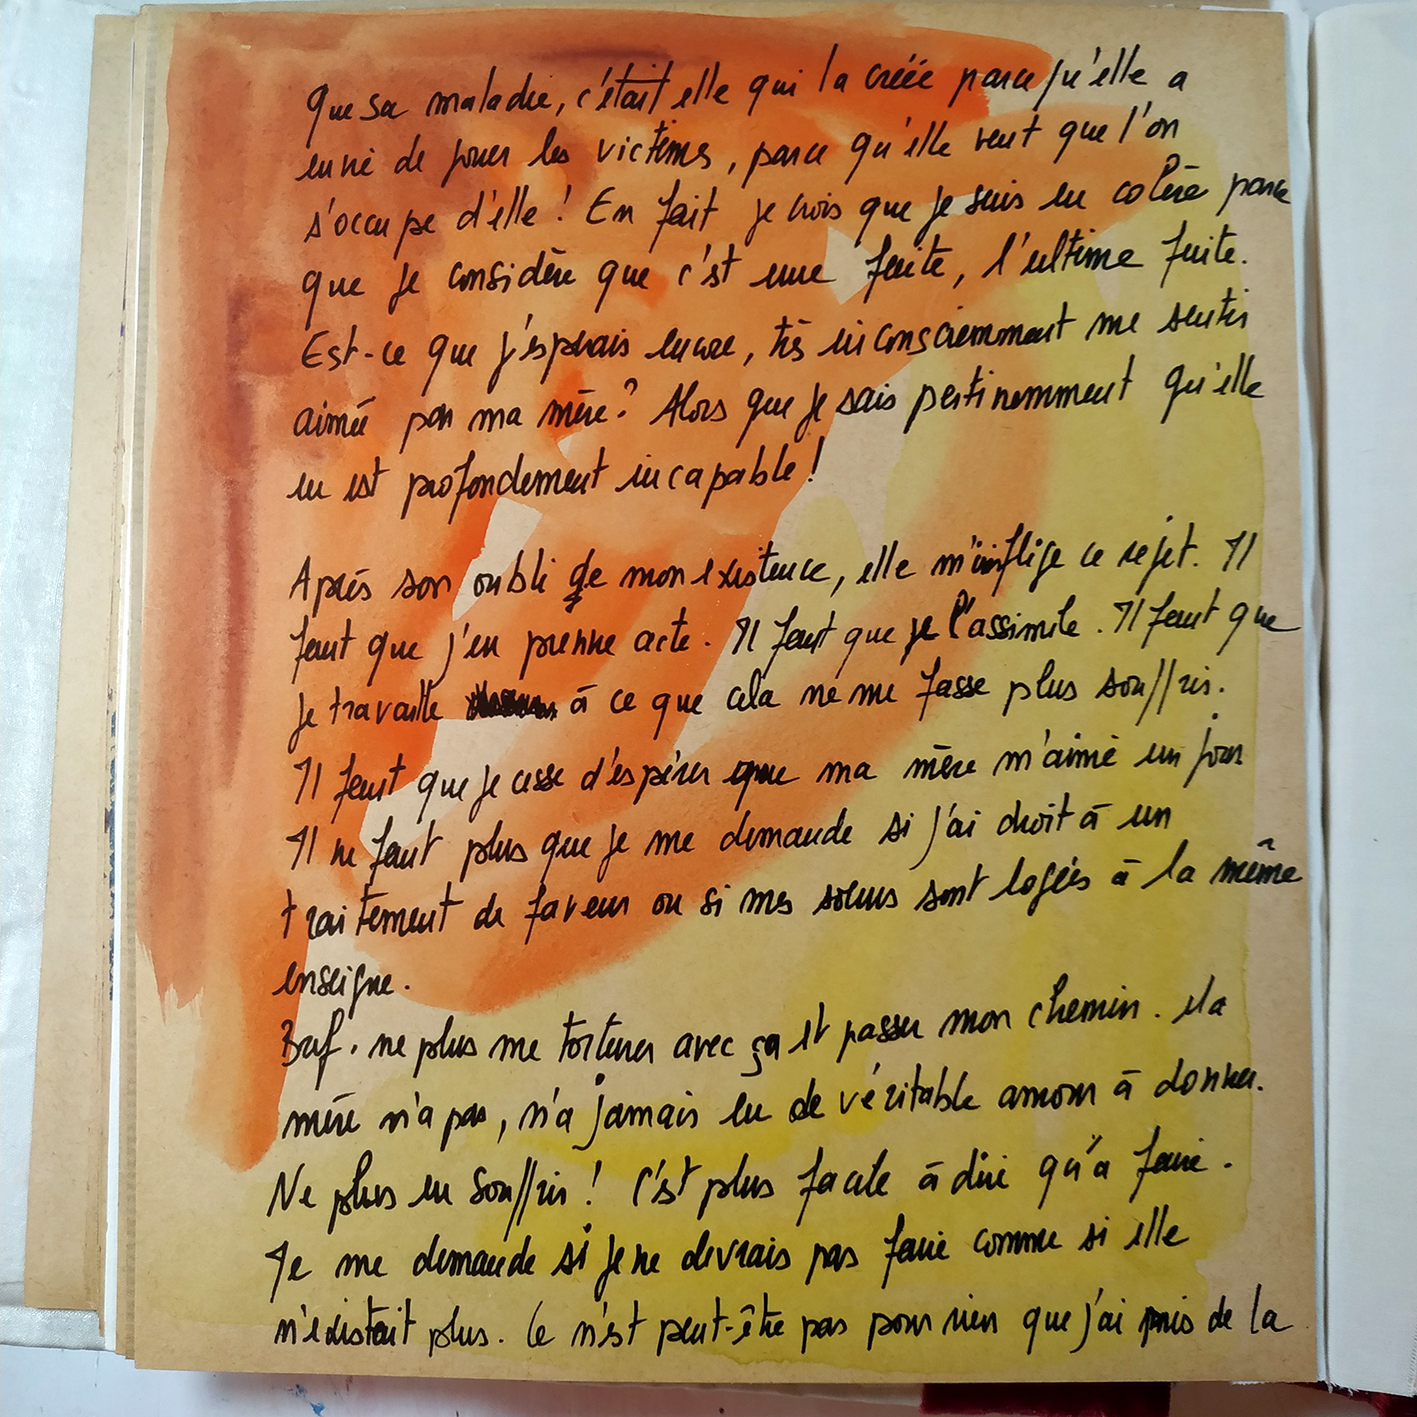 que sa maladie, c'était elle qui la créée parce qu'elle a
envie de jouer les victimes, parce qu'elle veut que l'on
s'occupe d'elle ! En fait je crois que je suis en colère parce
que je considère que c'st une fuite, l'ultime fuite.
Est-ce que j'espérais encore, très inconsciemment me sentir
aimée par ma mère ? Alors que je sais pertinemment qu'elle
en est profondement incapable !
Après son oubli de mon existence, elle m'inflige ce rejet. Il
faut que j'en prenne acte. Il faut que je l'assimile. Il faut que
je travaille à ce que cela ne me fasse plus souffrir.
Il faut que je cesse d'espérer que ma mère m'aime un jour
Il ne faut plus que je me demande si j'ai droit à un
traitement de faveur ou si mes soeurs sont logées à la même
enseigne.
Bref. ne plus me torturer avec ça et passer mon chemin. Ma
mère n'a pas, n'a jamais eu de véritable amour à donner.
Ne plus en souffrir ! C'est plus facile à dire qu'à faire.
Je me demande si je ne devrais pas faire comme si elle
n'existait plus. Ce n'est peut-être pas pour rien que j'ai mis de la